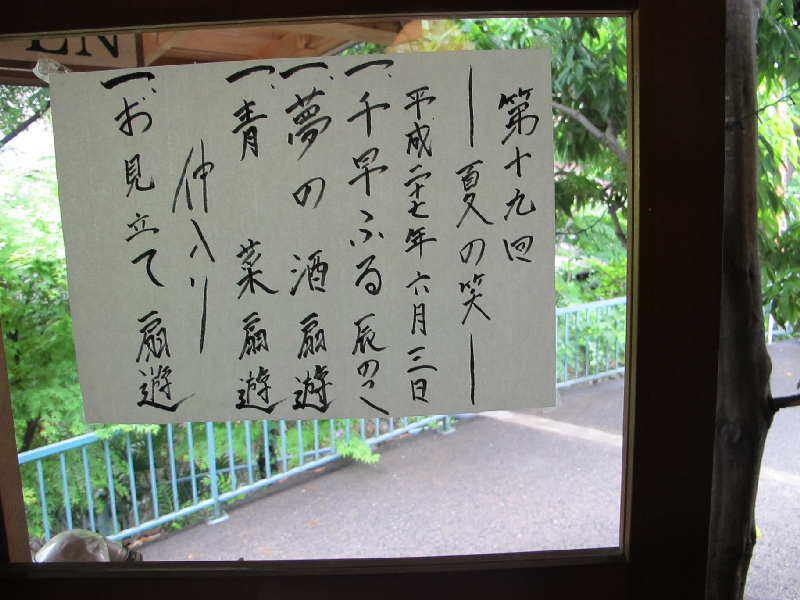 第十九回
―夏の笑―
平成二十七年六月三日
一、千早ふる 辰のこ
一、夢の酒 扇遊
一、青菜 扇遊
仲入り
一、お見立て 扇遊
EN